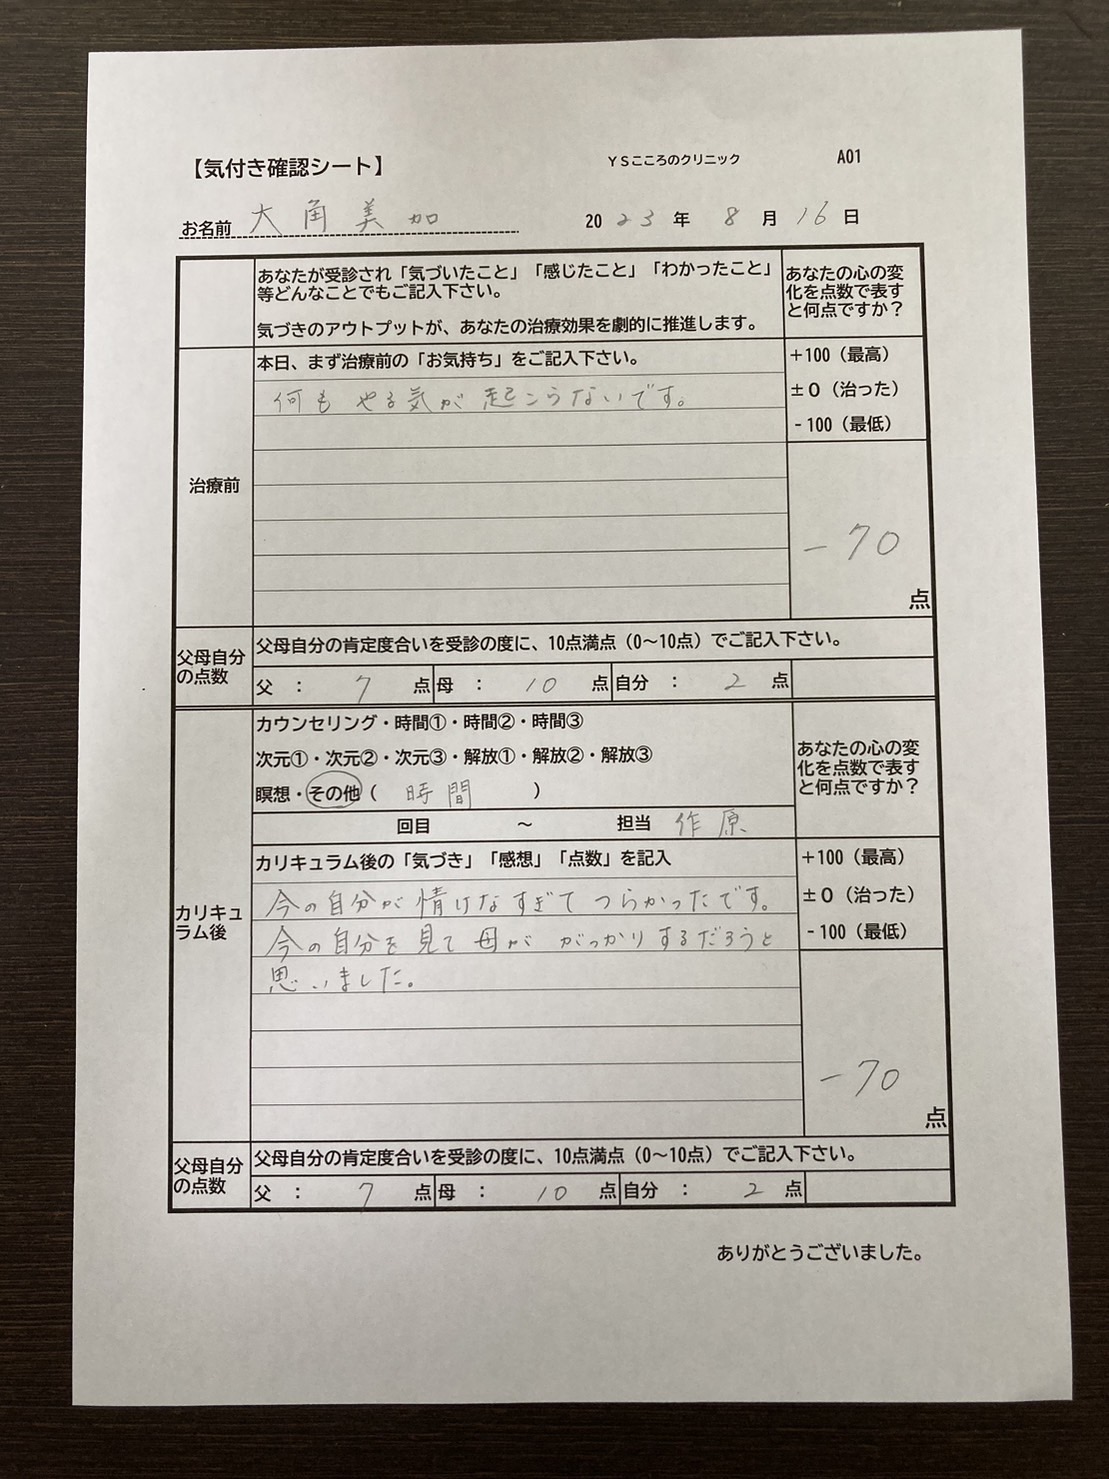 【気付き確認シート】 YSこころのクリニック A01
お名前 大角美加 2023年 8月16日
あなたが受診され「気づいたこと」「感じたこと」「わかったこと」
等どんなことでもご記入下さい。
気づきのアウトプットが、あなたの治療効果を劇的に推進します。
あなたの心の変
化を点数で表す
と何点ですか？
治療前
本日、まず治療前の「お気持ち」をご記入下さい。
何もやる気が起こらないです。
+100（最高）
±0（治った）
-100（最低）
-70
点
父母自分
の点数
父母自分の肯定度合いを受診の度に、10点満点（0〜10点）でご記入下さい。
父 ： 7 点 母 ： 10 点 自分 ： 2 点
カリキュ
ラム後
カウンセリング・時間①・時間②・時間③
次元①・次元②・次元③・解放①・解放②・解放③
瞑想・その他（ 時間 ）
回目 〜 担当 作原
あなたの心の変
化を点数で表す
と何点ですか？
カリキュラム後の「気づき」「感想」「点数」を記入
今の自分が情けなすぎてつらかったです。
今の自分を見て母ががっかりするだろうと
思いました。
+100（最高）
±0（治った）
-100（最低）
-70
点
父母自分
の点数
父母自分の肯定度合いを受診の度に、10点満点（0〜10点）でご記入下さい。
父 ： 7 点 母 ： 10 点 自分 ： 2 点
ありがとうございました。